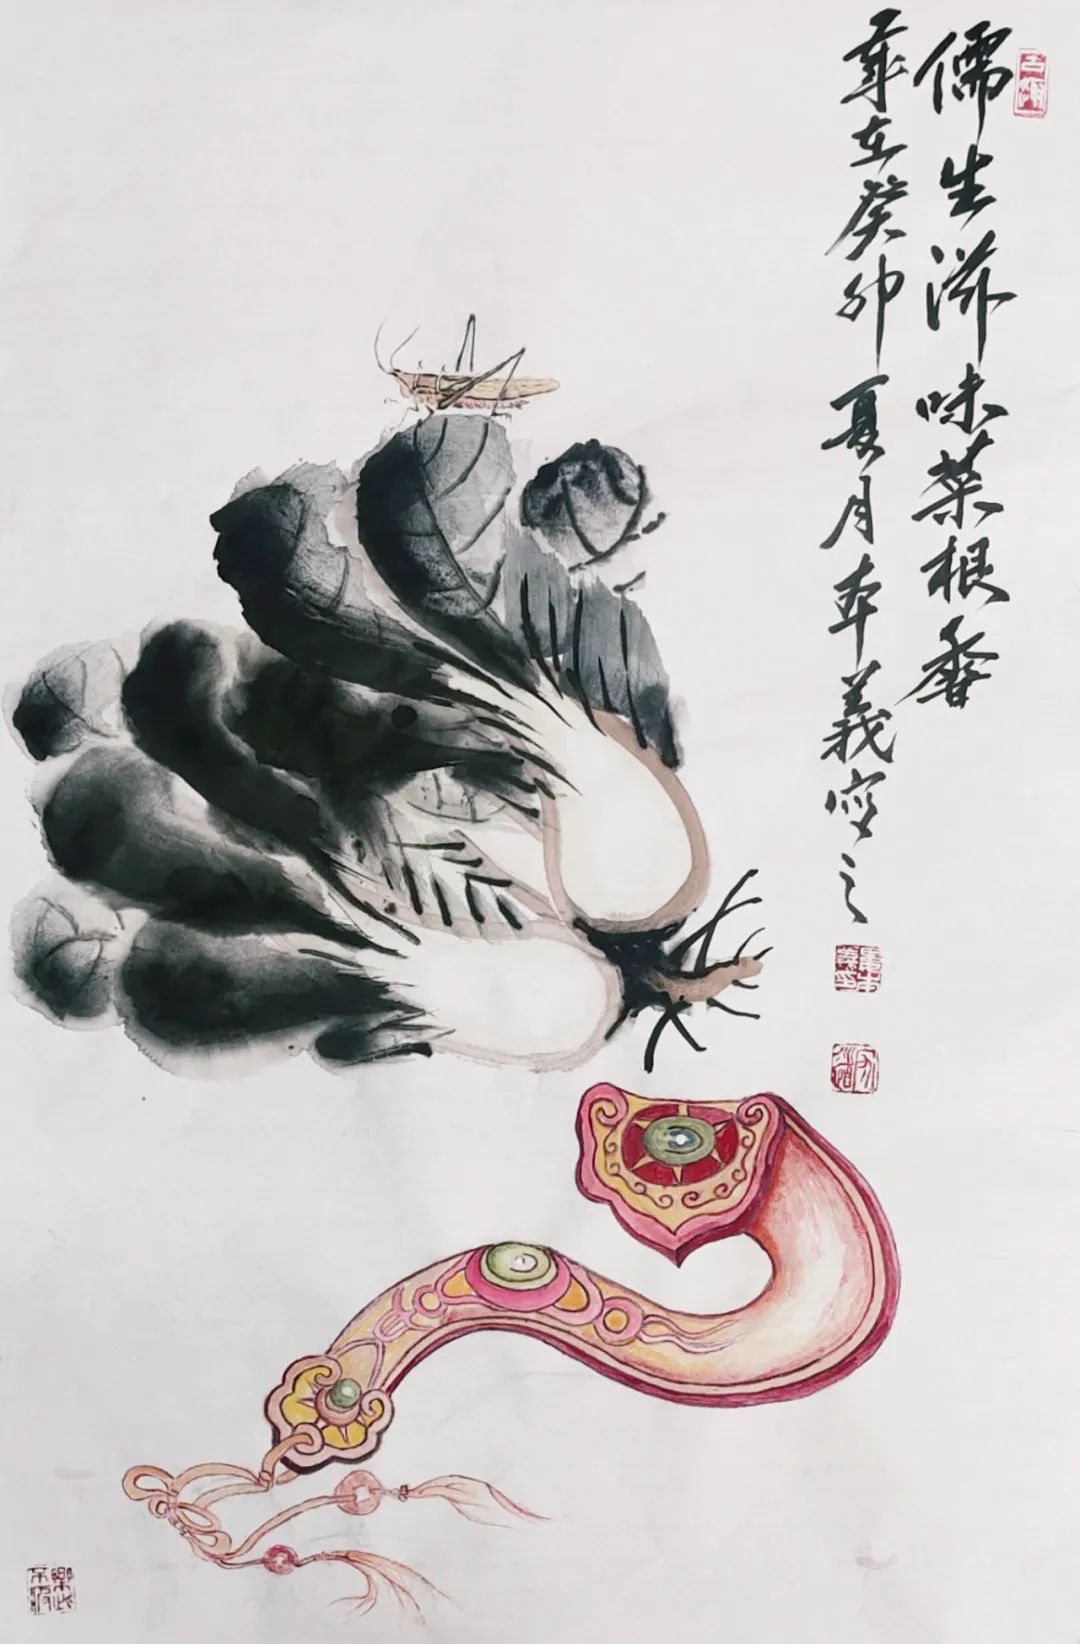 儒生滋味菜根香
岁在癸卯夏月本義写之